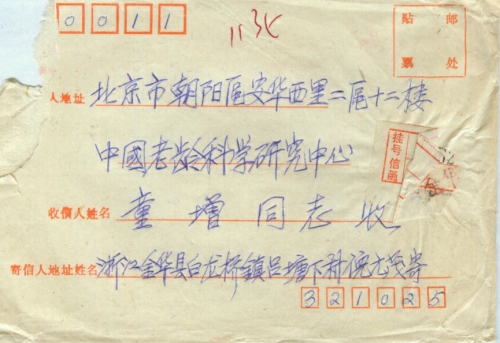 0011
113K
贴 邮
票 处
人地址 北京市朝阳區安华西里二區十二楼
中國老龄科学研究中心
挂号信函
收信人姓名 童增同志收
寄信人地址姓名 浙江金华县白龙桥鎮吕塘下村倪尤茂寄
321025